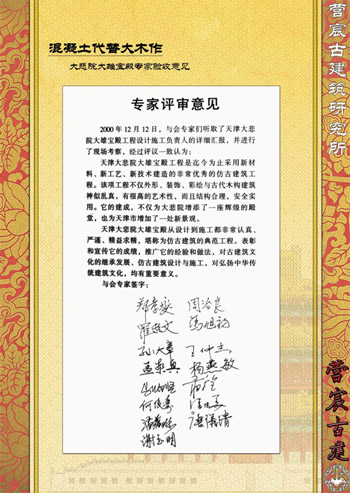 混凝土代替大木作
大悲院大雄宝殿专家验收意见
专家评审意见
2000 年 12 月 12 日，与会专家们听取了天津大悲
院大雄宝殿工程设计施工负责人的详细汇报，并进行
了现场考察，经过评议一致认为：
天津大悲院大雄宝殿工程是迄今为止采用新材
料、新工艺、新技术建造的非常优秀的仿古建筑工
程。该项工程不仅外形、装饰、彩绘与古代木构建筑
神似乱真，有很高的艺术性，而且结构合理，安全实
用。它的建成，不仅为大悲院增添了一座辉煌的殿
堂，也为天津市增加了一处新景观。
天津大悲院大雄宝殿从设计到施工都非常认真、
严谨、精益求精，堪称为仿古建筑的典范工程。表彰
和宣传它的成绩，推广它的经验和做法，对古建筑文
化的继承发展、仿古建筑设计与施工，对弘扬中华传
统建筑文化，均有重要意义。
与会专家签字：
郑孝燮
罗哲文
杨燕敏
谢玉明
营宸古建筑研究所
营宸古建